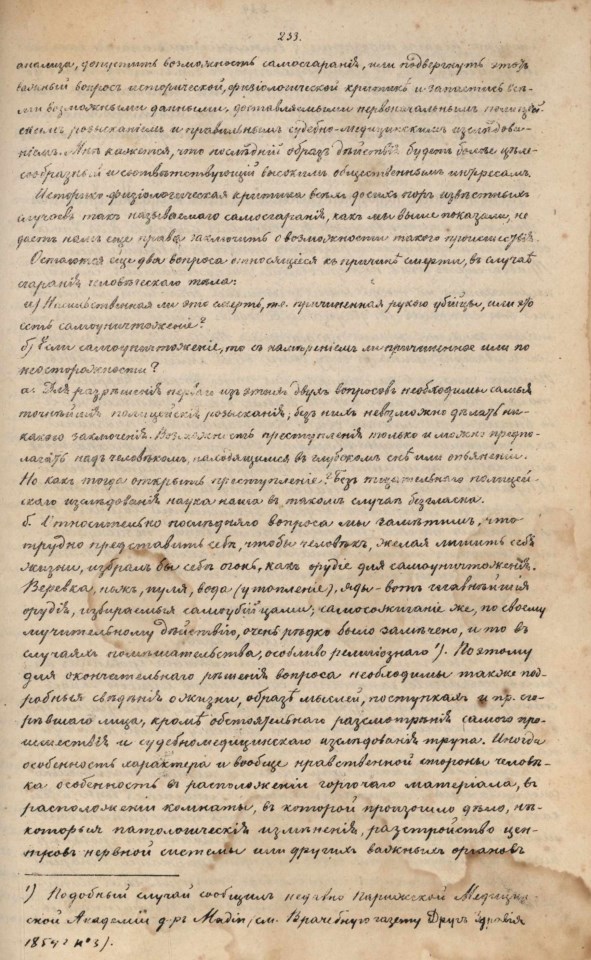 233.
анализа, допустить возможность самосгаранія, или подвергнуть этотъ
важный вопросъ исторической, физіологической критикѣ и запастись всѣ-
ми возможными данными, доставляемыми первоначальнымъ полицей-
скимъ розысканіемъ и правильнымъ судебно-медицинскимъ изслѣдова-
ніемъ. Мнѣ кажется, что послѣдній образъ дѣйствій будетъ болѣе цѣле-
сообразный и соотвѣтствующій высокимъ общественнымъ интересамъ.
Историко-физіологическая критика всѣхъ досихъ поръ извѣстныхъ
случаевъ такъ называемаго самосгаранія, какъ мы выше показали, не
даетъ намъ еще права заключить о возможности такого происшествія.
Остаются еще два вопроса относящіеся къ причинѣ смерти, въ случаѣ
сгаранія человѣческаго тѣла:
а) Насильственная ли это смерть, т.е. причиненная рукою убійцы, или это
есть самоуничтоженіе?
б) Если самоуничтоженіе, то съ намѣреніемъ ли причиненное или по
неосторожности?
а. Для разрѣшенія перваго изъ этихъ двухъ вопросовъ необходимы самыя
точнѣйшія полицейскія розысканія; безъ нихъ невозможно дѣлать ни-
какого заключенія. Возможность преступленія только и можно предпо-
лагать надъ человѣкомъ, находящимся въ глубокомъ снѣ или опьяненіи.
Но какъ тогда открыть преступленіе? Безъ тщательнаго полицей-
скаго изслѣдованія наука наша въ такомъ случаѣ безгласна.
б. Относительно послѣдняго вопроса мы замѣтимъ, что
трудно представить себѣ, чтобы человѣкъ, желая лишить себя
жизни, избралъ бы себѣ огонь, какъ орудіе для самоуничтоженія.
Веревка, ножъ, пуля, вода (утопленіе), яды – вотъ главнѣйшія
орудія, избираемыя самоубійцами; самосожиганіе же, по своему
мучительному дѣйствію, очень рѣдко было замѣчено, и то въ
случаяхъ помѣшательства, особливо религіознаго ¹). Поэтому
для окончательнаго рѣшенія вопроса необходимы также под-
робныя свѣдѣнія о жизни, образѣ мыслей, поступкахъ и пр. сго-
рѣвшаго лица, кромѣ обстоятельнаго разсмотрѣнія самого про-
исшествія и судебномедицинскаго изслѣдованія трупа. Иногда
особенность характера и вообще нравственной стороны человѣ-
ка особенность въ расположеніи горючаго матеріала, въ
расположеніи комнаты, въ которой произошло дѣло, нѣ-
которыя патологическія измѣненія, разстройство цен-
тровъ нервной системы или другихъ важныхъ органовъ
¹) Подобный случай сообщилъ недавно Парижской Медицин-
ской Академіи д-ръ (см. Врачебную газету Другъ Здравія
1854 г. № 3).